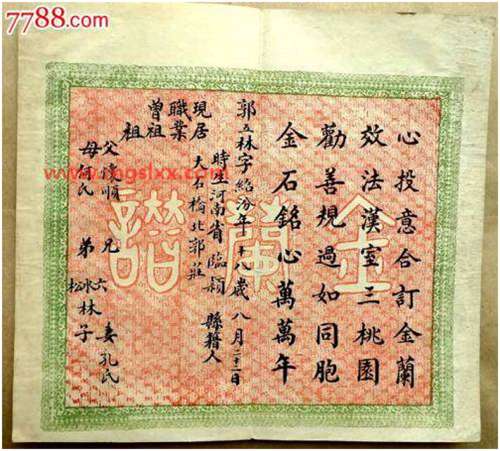 7788.com
金蘭譜
心投意合訂金蘭
效法漢室三桃園
勸善規過如同胞
金石銘心萬萬年
郭五林字紹汾年十八歲八月二十二日
時生河南省臨潁縣籍人
現居大石橋北郭莊
職業
曾祖
祖
父順兄六妻孔氏
母氏弟松林子